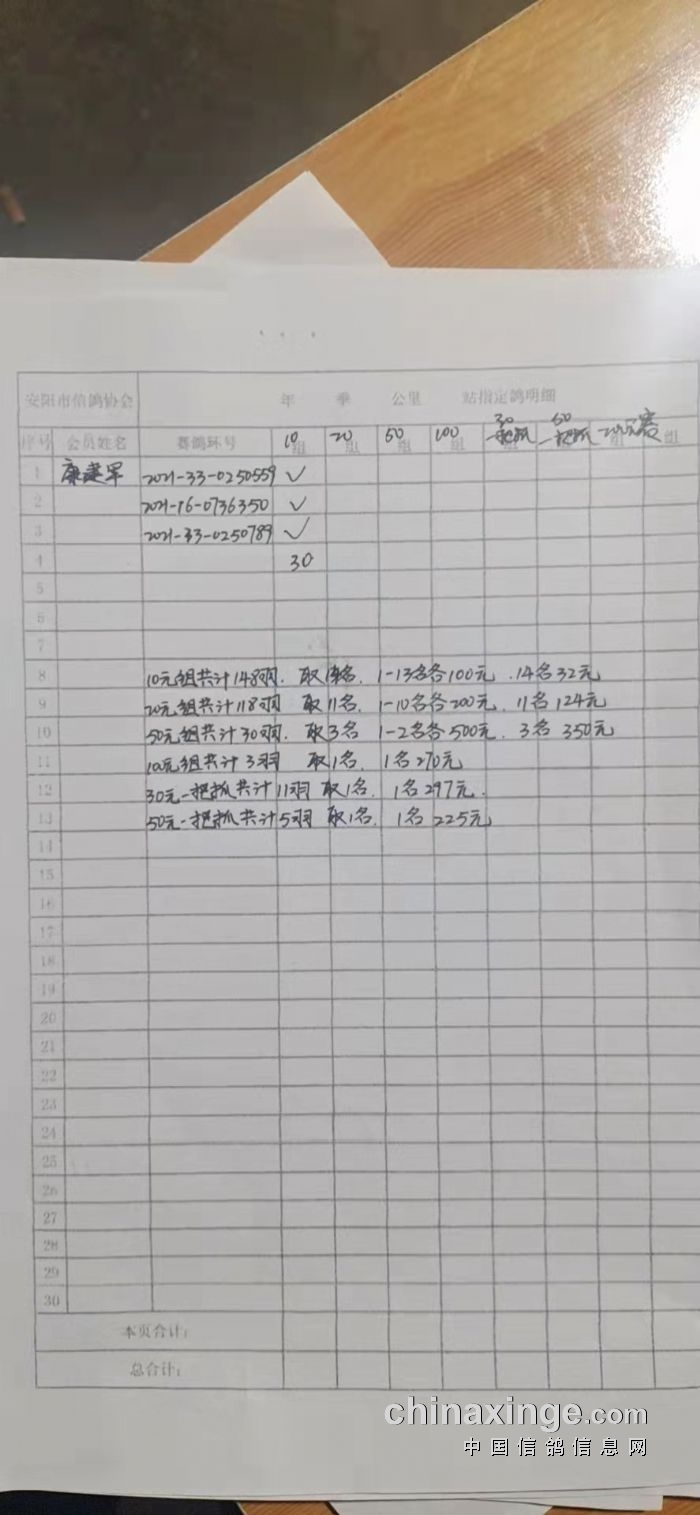 安阳市信鸽协会 年 季 公里 站指定鸽明细
序号 会员姓名 赛鸽环号 10组 20组 50组 100组 30一把抓 50一把抓 组 组
1 康建军 2021-33-0250559 ✓
2 2021-16-0736350 ✓
3 2021-33-0250789 ✓
4 30
5
6
7
8 10元组共计148羽. 取14名. 1-13名各100元. 14名32元
9 20元组共计118羽 取11名. 1-10名各200元. 11名124元
10 50元组共计30羽. 取3名 1-2名各500元. 3名350元
11 100元组共计3羽 取1名. 1名270元
12 30元一把抓共计11羽 取1名. 1名297元.
13 50元一把抓共计5羽 取1名. 1名225元
14
15
16
17
18
19
20
21
22
23
24
25
26
27
28
29
30
本页合计:
总合计:
chinaxinge.com
中国信鸽信息网